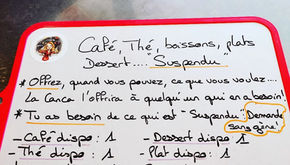 Café, Thé, boissons, plats
Dessert.... "Suspendu"
* Offrez, quand vous pouvez, ce que vous voulez....
La Cance l'offrira à quelqu'un qui en a besoin!
* Tu as besoin de ce qui est "Suspendu" Demande
sans gêne!
- Café dispo : 1 - Dessert dispo : 1
- Thé dispo : 1 - Plat dispo : 1